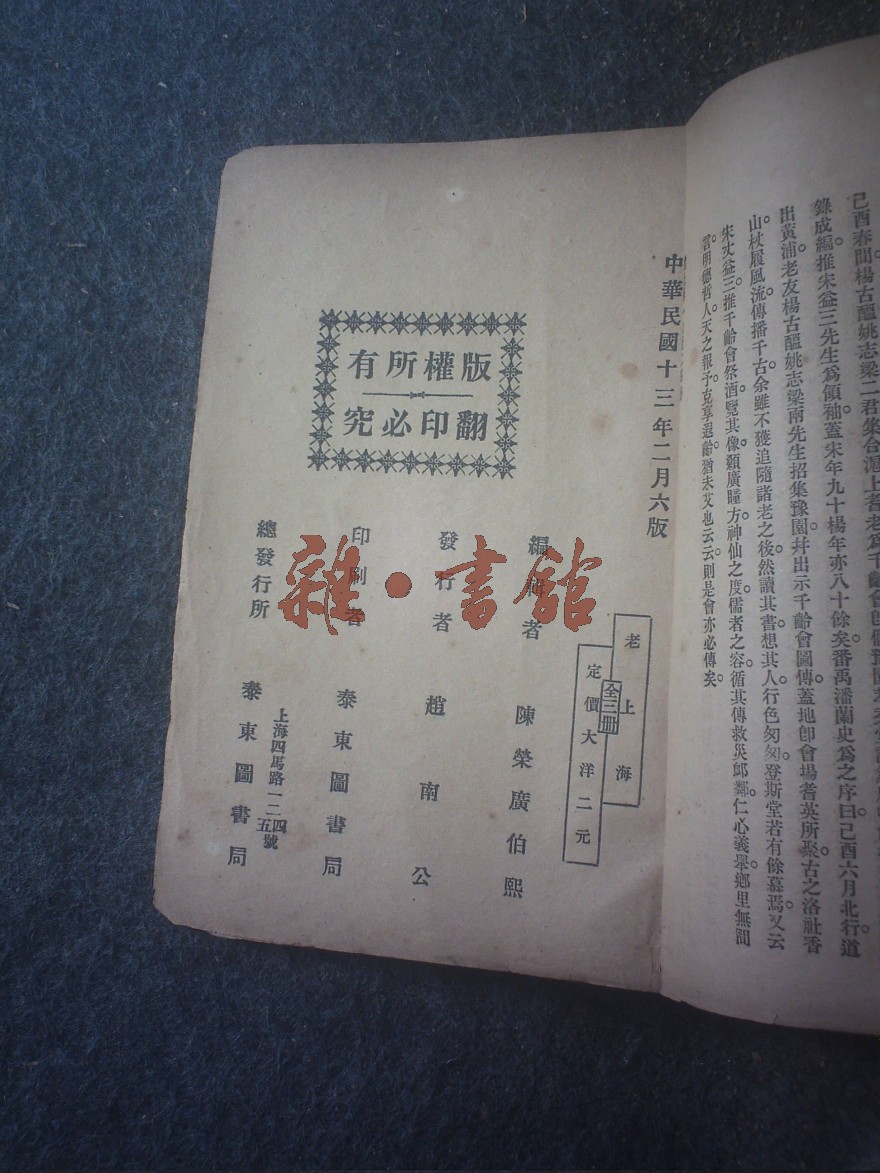 錄成編推宋益三先生爲領袖蓋宋年九十楊年亦八十餘矣番禺潘蘭史爲之序曰己酉六月北行道
出黃浦老友楊古醞姚志梁兩先生招集豫園幷出示千齡會圖傳蓋地卽會場耆英所聚古之洛社香
山杖履風流傳播千古余雖不獲追隨諸老之後然讀其書想其人行色匆匆登斯堂若有餘慕焉又云
宋丈益三推千齡會祭酒覽其像顏廣瞳方神仙之度儒者之容循其傳救災卹鄰仁心義舉鄉里無間
言明德哲人天之報予克享遐齡猶未艾也云云則是會亦必傳矣
中華民國十三年二月六版
版權所有
翻印必究
老上海
全三冊
定價大洋二元
編輯者 陳榮廣伯熙
發行者 趙南公
印刷者 泰東圖書局
上海四馬路一二四五號
總發行所 泰東圖書局
雜·書館